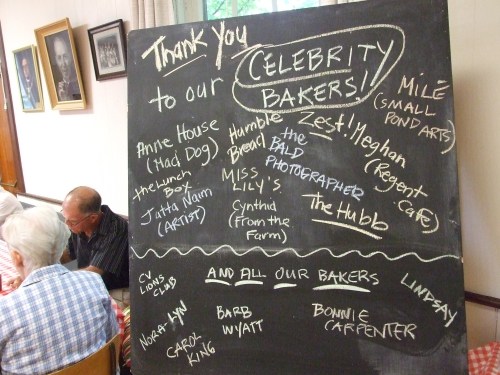 Thank You
to our
CELEBRITY
BAKERS!
Anne House
(Mad Dog)
the Lunch
Box
Jatta Naim
(ARTIST)
Humble
Bread
MISS
LILY'S
Cynthia
(From the
Farm)
Zest!
the
BALD
PHOTOGRAPHER
The Hubb
MILÉ
(SMALL
POND ARTS)
Meghan
(Regent
Cafe)
AND ALL OUR BAKERS
CV
LIONS
CLUB
NORA-LYN
CAROL
KING
BARB
WYATT
BONNIE
CARPENTER
LINDSAY